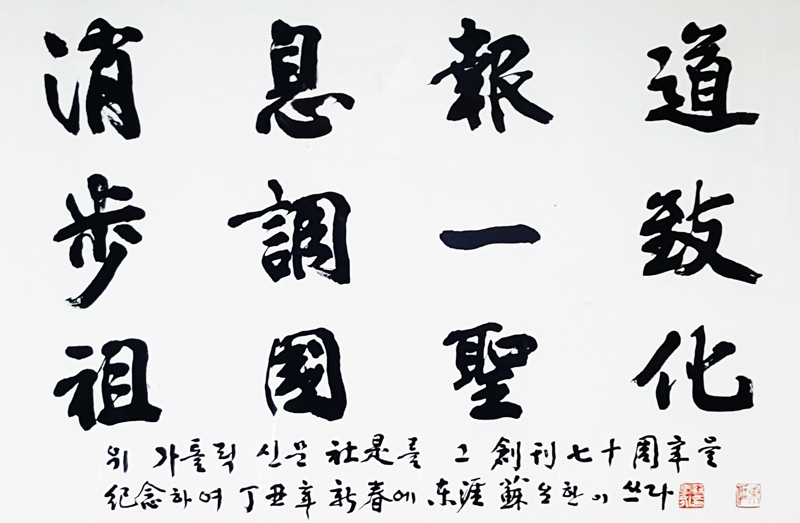 消息報道
步調一致
祖國聖化
위 가톨릭 신문 社是를 그 創刊 七十周年을
紀念하여 丁丑年 新春에 东涯 蘇효한이 쓰다